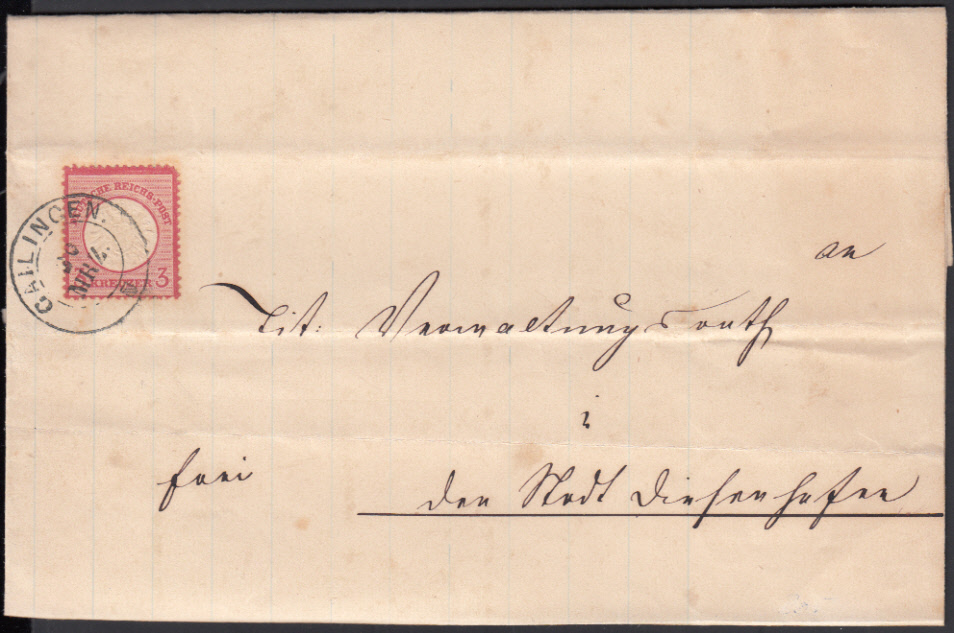 DEUTSCHE REICHS-POST
KREUZER 3
GAILINGEN.
an
Tit: Verwaltungsrath
der Stadt Diesenhofen
frei